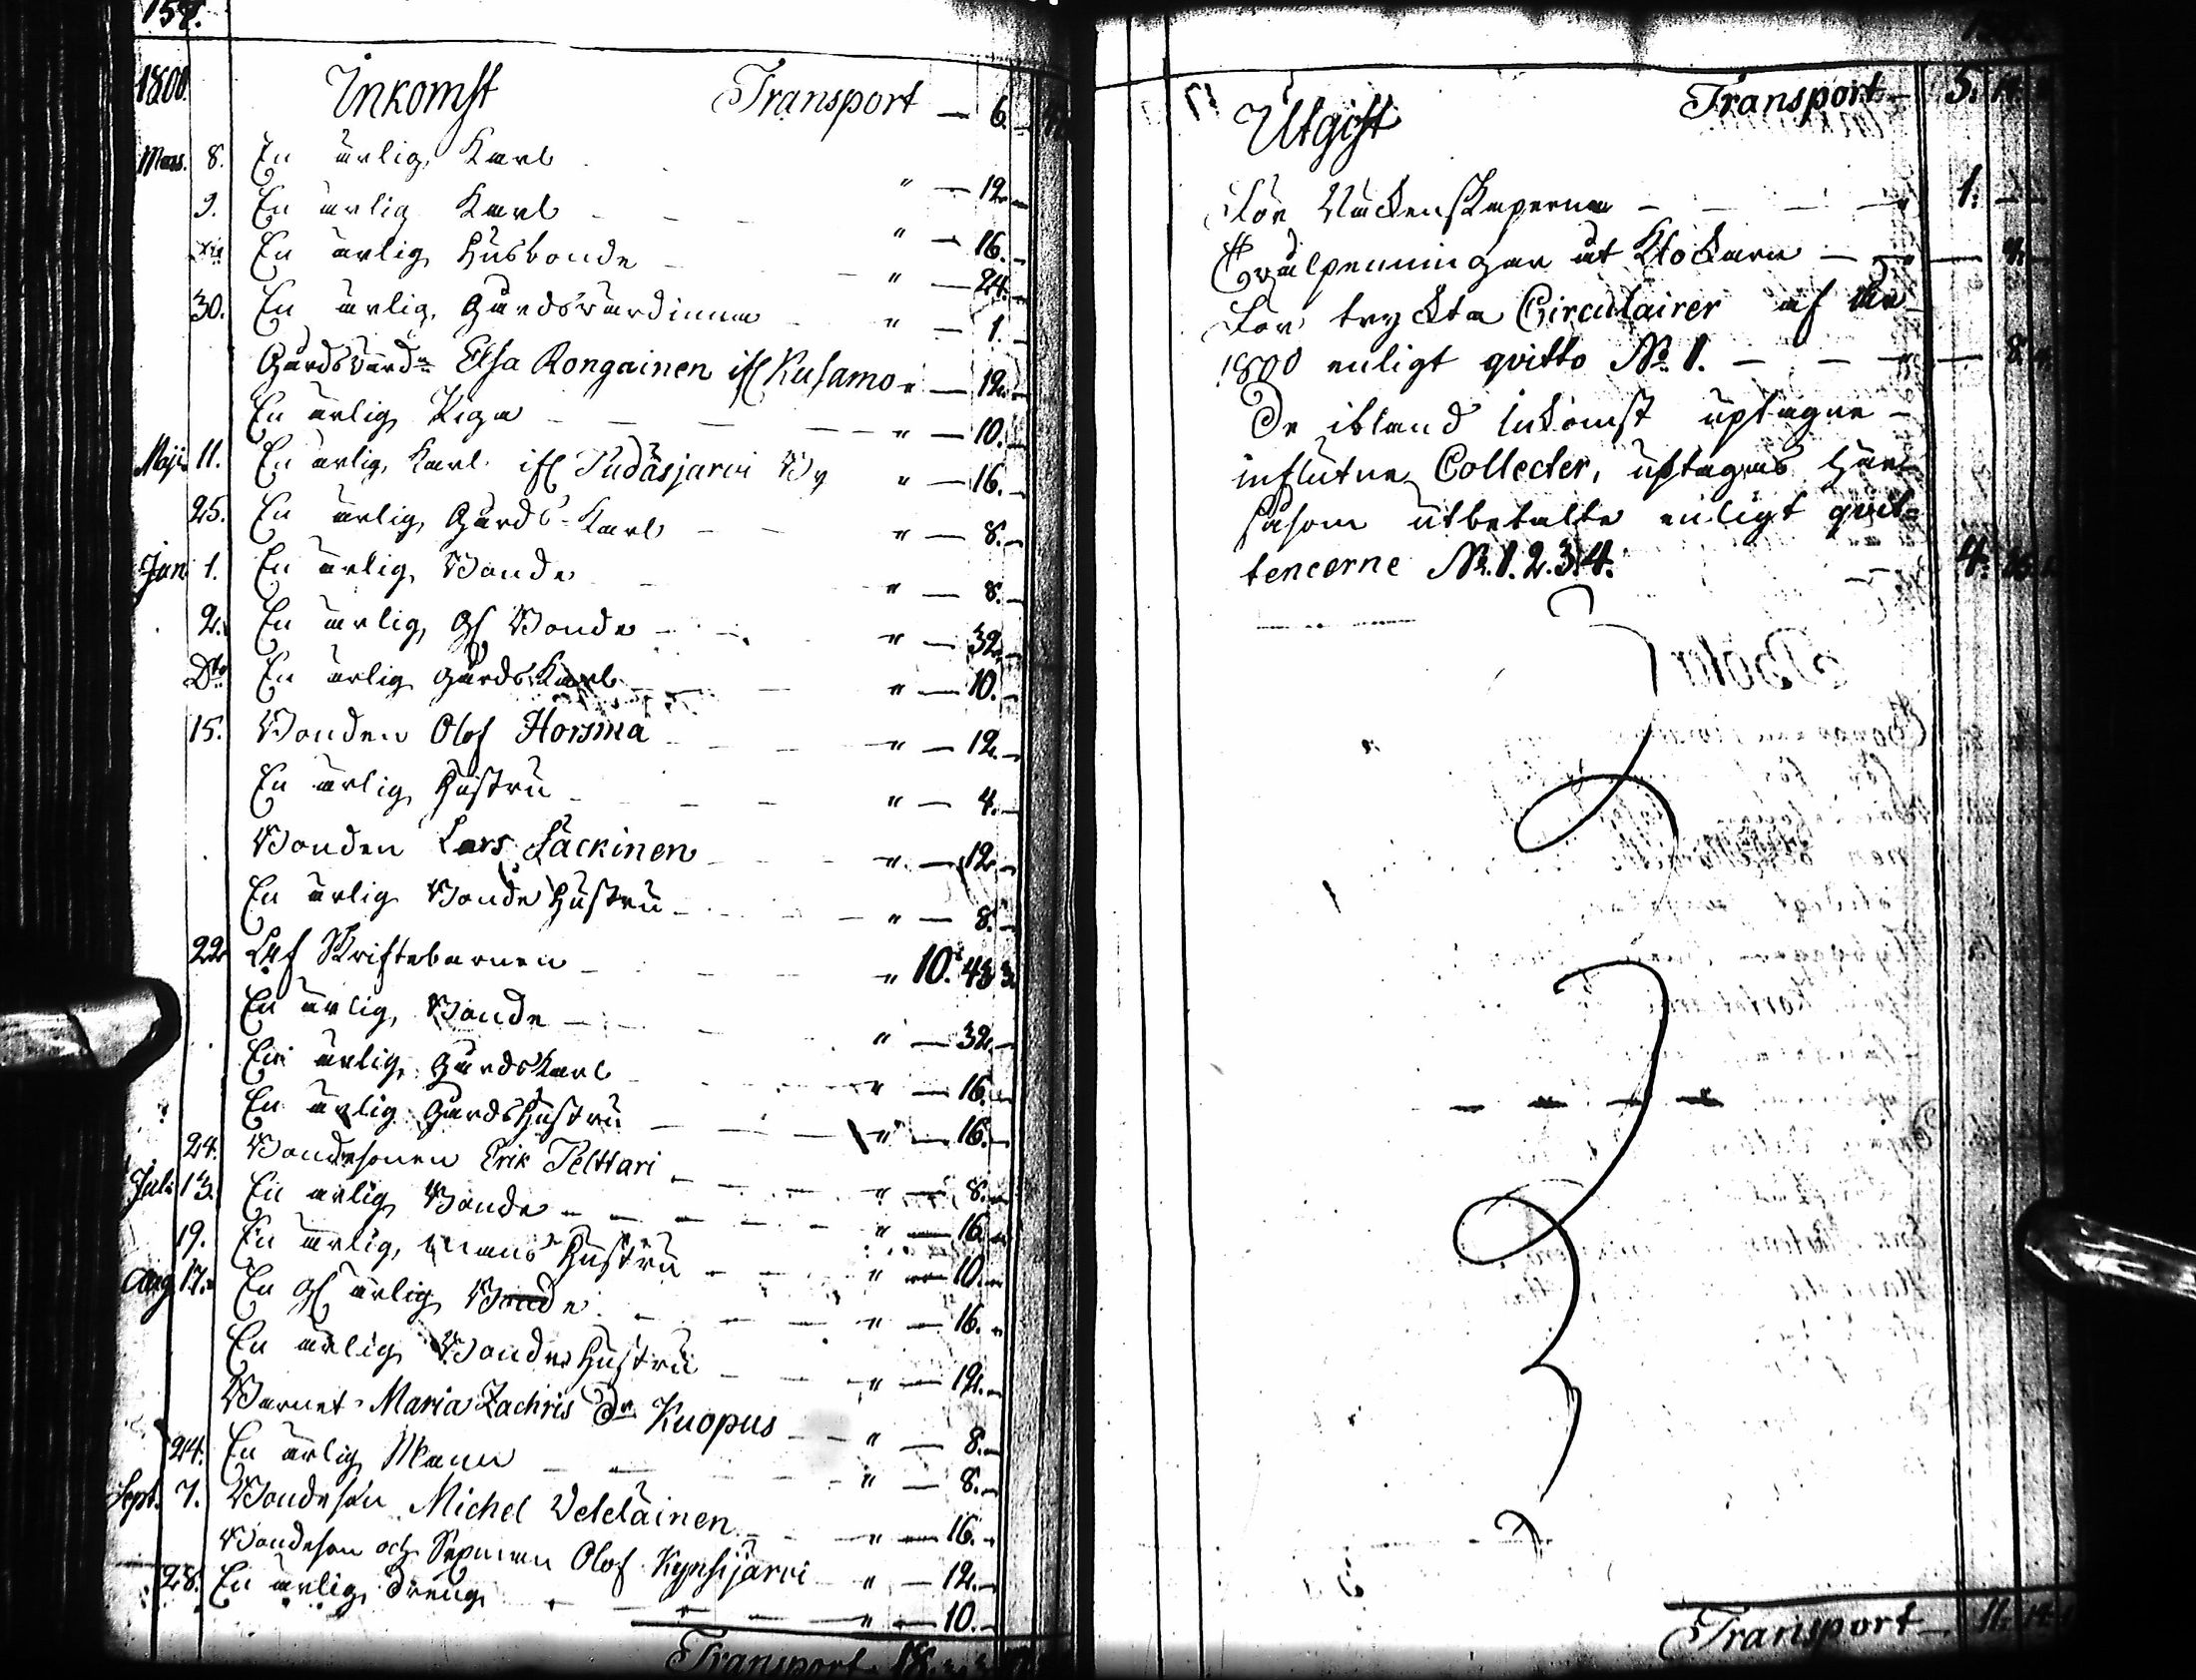 158.
1800. Inkomst Transport — 6.
Mars. 8. En ärlig Karl " — 12.
9. En ärlig Karl " — 16.
En ärlig Husbonde " — 24.
30. En ärlig Gårdsvärdinna " — 1.
Gårdsvärd:n Elsa Rongainen ifr Kusamo " — 12.
En ärlig Piga " — 10.
Maji 11. En ärlig Karl ifr Pudäsjärvi By " — 16.
25. En ärlig Gårds-Karl " — 8.
Jun 1. En ärlig Bonde " — 8.
2. En ärlig Gl Bonde " — 32.
Dto En ärlig Gårds Karl " — 10.
15. Bonden Olof Horsma " — 12.
En ärlig Hustru " — 4.
Bonden Lars Läckinen " — 12.
En ärlig Bonde Hustru " — 8.
22 Af Skriftebarnen " 10. 43 3.
En ärlig Bonde " — 32.
En ärlig Gårdskarl " — 16.
En ärlig Gårdshustru " — 16.
24. Bondesonen Erik Pelttari " — 8.
Juli 13. En ärlig Bonde " — 16
19. En ärlig mans Hustru " — 10.
Aug 17. En gl ärlig Bonde " — 16.
En ärlig Bonde Hustru " — 12.
Barnet Maria Zachris dr Kuopus " — 8.
24. En ärlig Man " — 8.
Sept. 7. Bondeson Michel Veteläinen " — 16.
Bondeson och Sepmen Olof Kynsijärvi " — 12.
28. En ärlig dreng " — 10.
Transport 18.
Utgift Transport 5. 14.
För Räckenskaperna — 1.
Qvälpenningar åt Klockarn — 4.
För tryckta Circulairer af
1800 enligt qvitto No 1. — 8.
De ibland Inkomst uptagne
influtne Collecter, uptages här
såsom utbetalte enligt qvit-
tencerne No. 1. 2. 3. 4. 4.
Transport 11. 12.